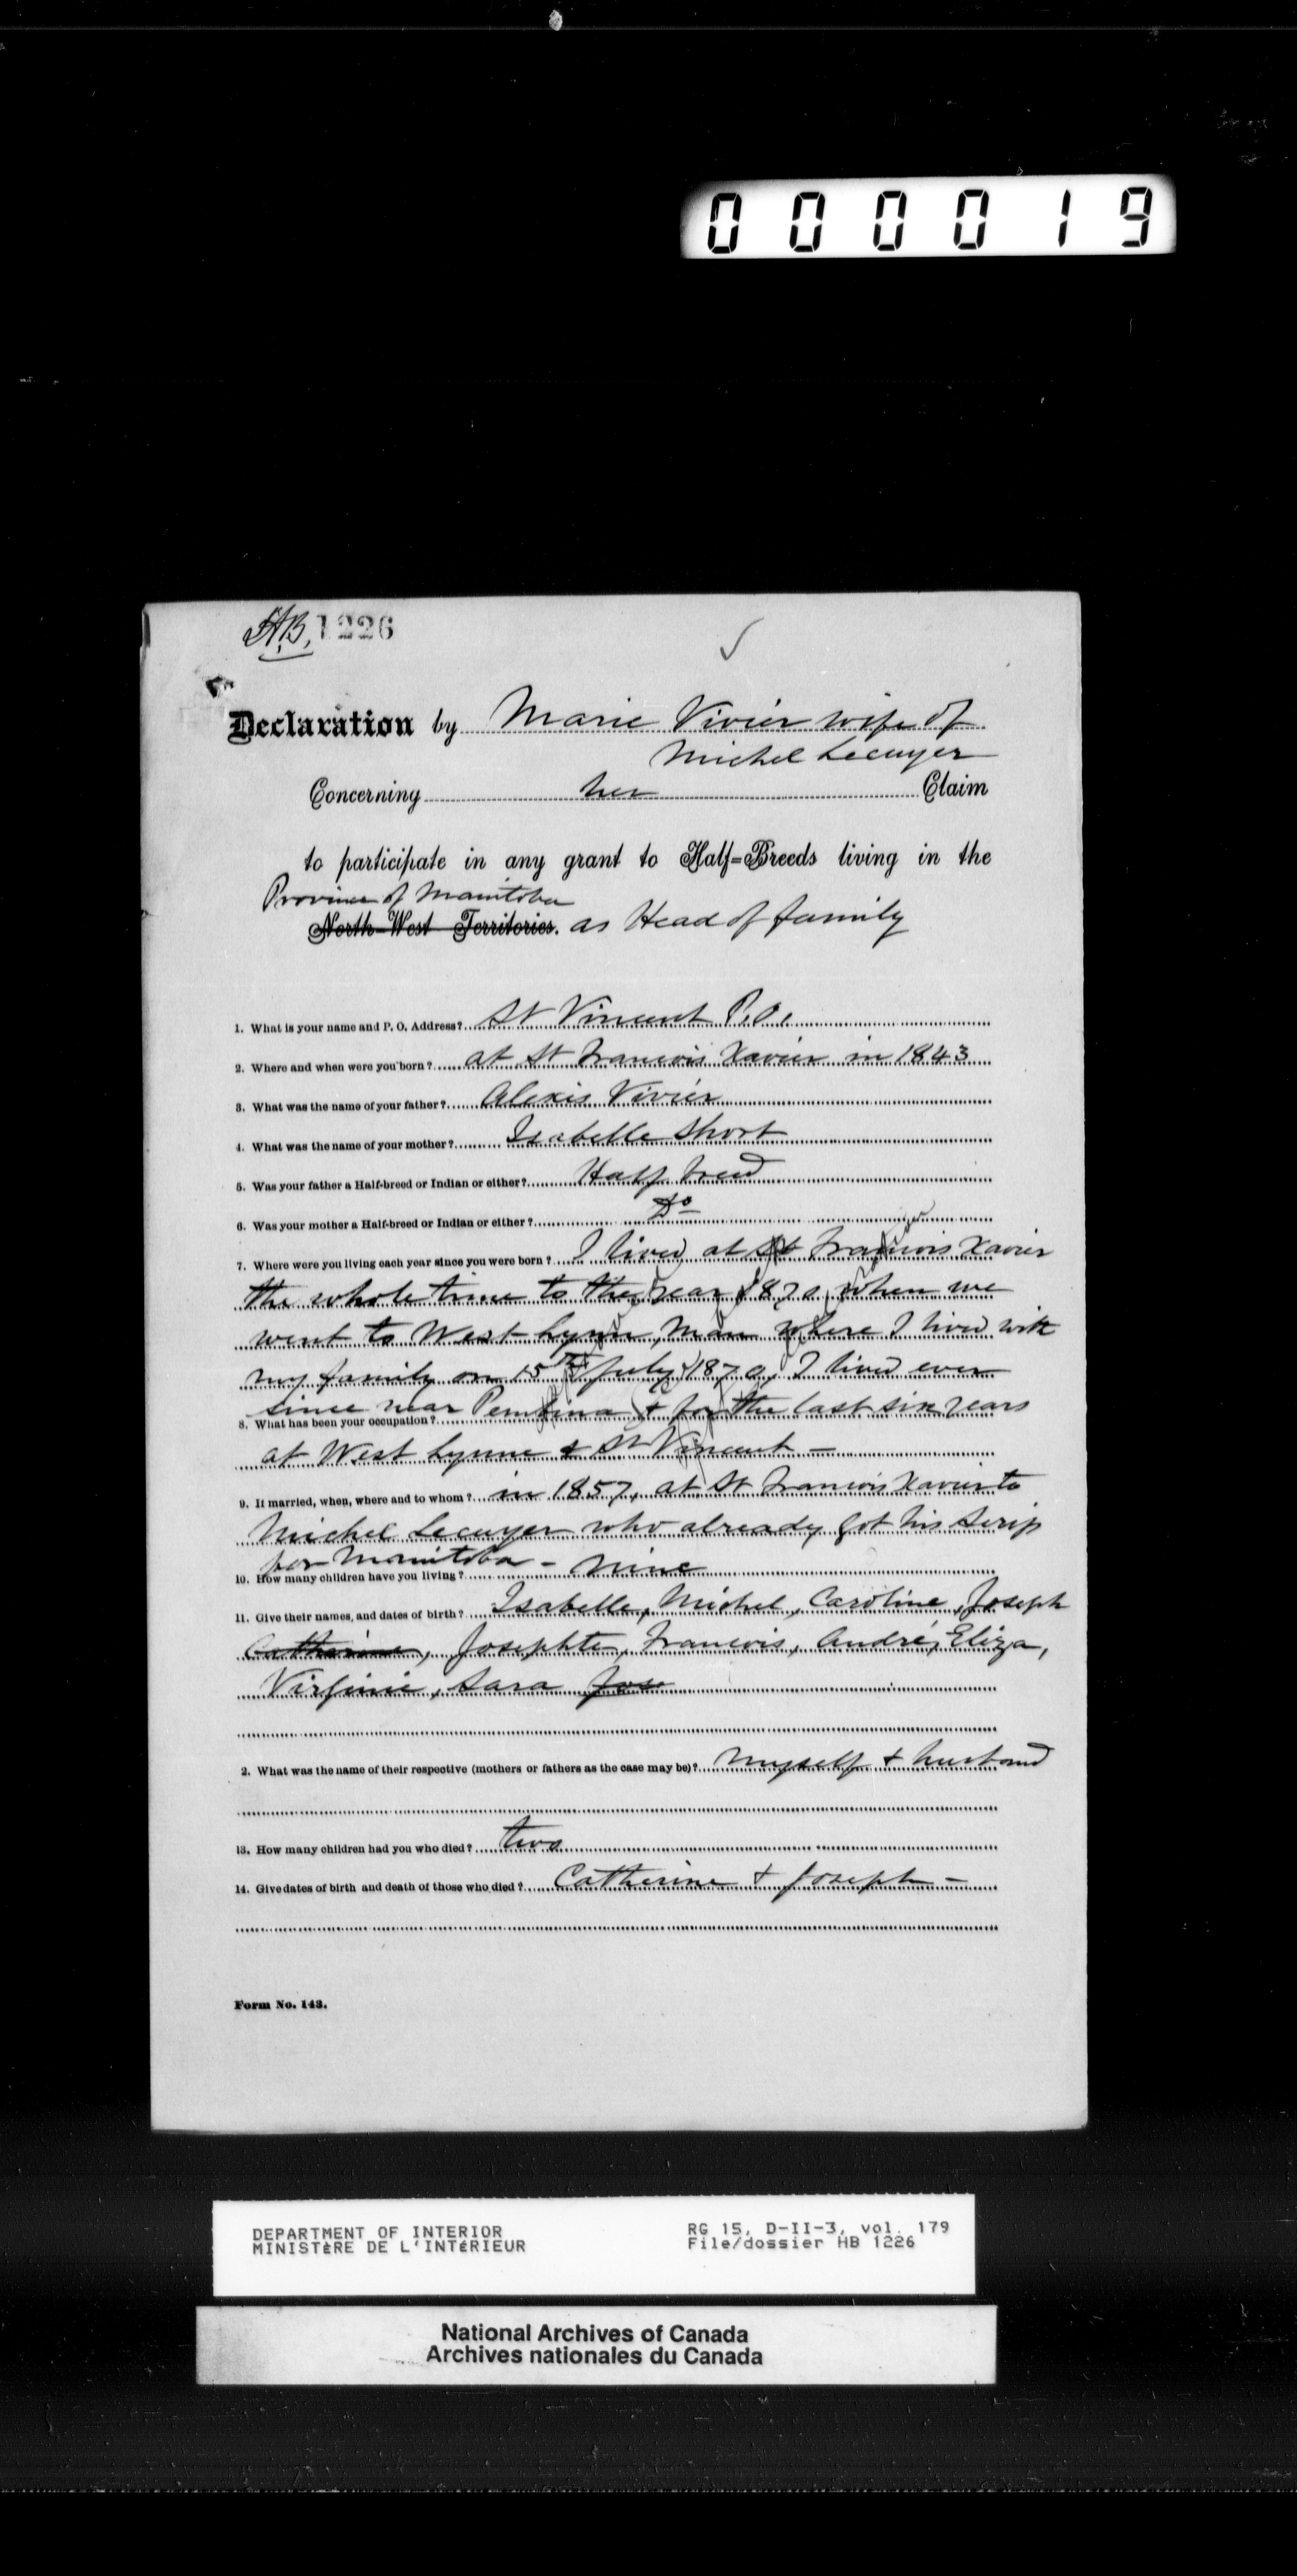 000019
H.B. 1226
Declaration by Marie Vivier wife of
Michel Lecuyer
Concerning her Claim
to participate in any grant to Half-Breeds living in the
Province of Manitoba
North-West Territories. as Head of family
1. What is your name and P. O. Address? St Vincent P.O.
2. Where and when were you born? at St Francois Xavier in 1843
3. What was the name of your father? Alexis Vivier
4. What was the name of your mother? Isabelle Short
5. Was your father a Half-breed or Indian or either? Half breed
6. Was your mother a Half-breed or Indian or either? Do
7. Where were you living each year since you were born? I lived at St Francois Xavier
the whole time to the year 1870, when we
went to West Lynne, Man where I lived with
my family on 15th July 1870, I lived ever
since near Pembina & for the last six years
8. What has been your occupation?
at West Lynne & St Vincent —
9. If married, when, where and to whom? in 1857, at St Francois Xavier to
Michel Lecuyer who already got his scrip
for Manitoba -
10. How many children have you living? nine
11. Give their names, and dates of birth? Isabelle, Michel, Caroline, Joseph
Catherine, Josephte, Francois, André, Eliza,
Virginie, Sara Jos
2. What was the name of their respective (mothers or fathers as the case may be)? myself & husband
13. How many children had you who died? two
14. Give dates of birth and death of those who died? Catherine & Joseph —
Form No. 143.
DEPARTMENT OF INTERIOR RG 15, D-II-3, vol. 179
MINISTÈRE DE L'INTÉRIEUR File/dossier HB 1226
National Archives of Canada
Archives nationales du Canada